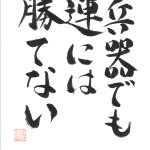 兵器でも
運には
勝てない